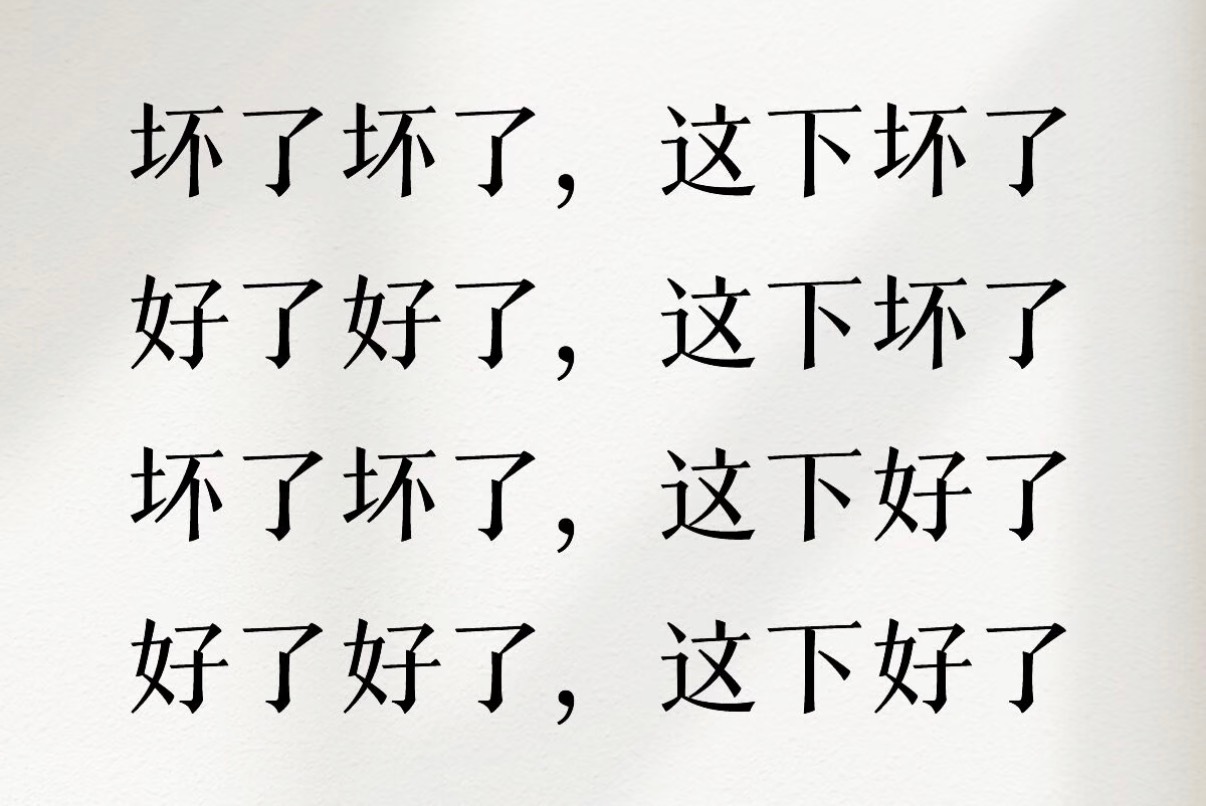 坏了坏了，这下坏了
好了好了，这下坏了
坏了坏了，这下好了
好了好了，这下好了